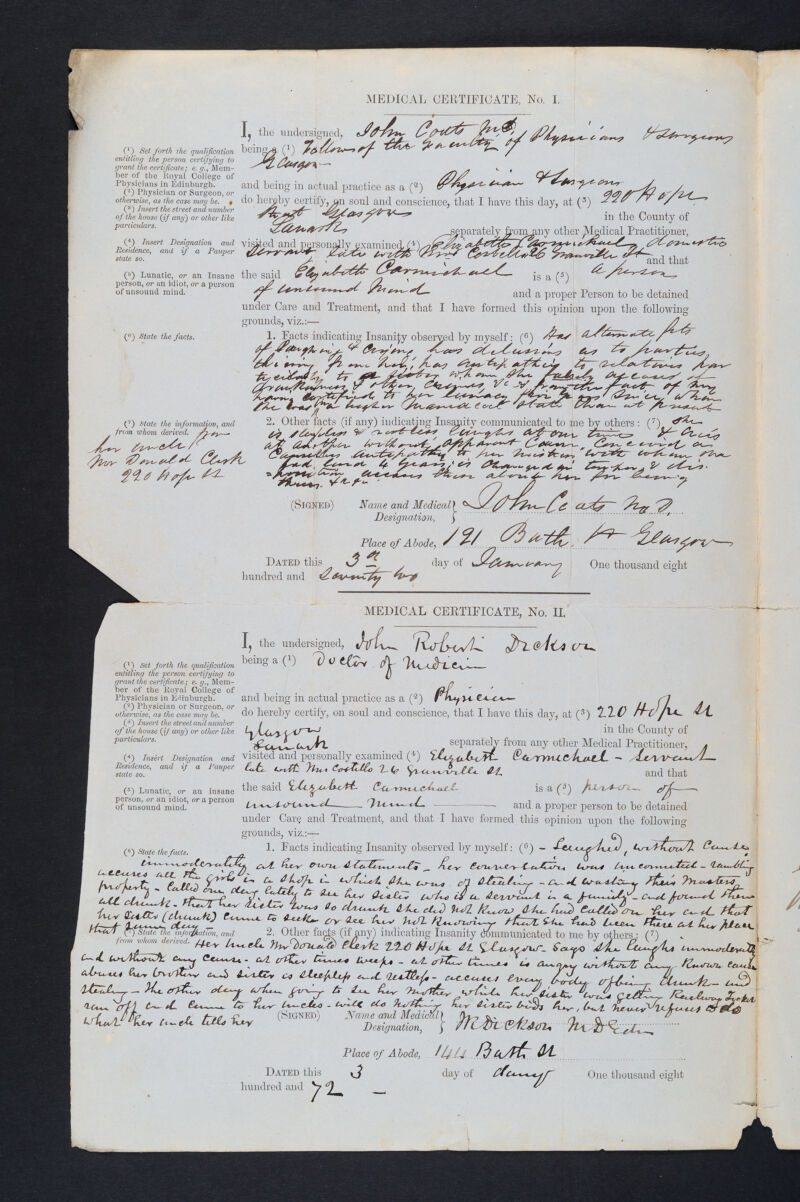 MEDICAL CERTIFICATE, No. I.
I, the undersigned, John Coats M.D.
being a (1) Fellow of the Faculty of Physicians & Surgeons
Glasgow
and being in actual practice as a (2) Physician & Surgeon
do hereby certify, on soul and conscience, that I have this day, at (3) 220 Hope
Street Glasgow in the County of
Lanark separately from any other Medical Practitioner,
visited and personally examined (4) Elizabeth Carmichael, domestic
Servant, late with Mrs Granville St and that
the said Elizabeth Carmichael is a (5) a person
of unsound mind and a proper Person to be detained
under Care and Treatment, and that I have formed this opinion upon the following
grounds, viz.:—
1. Facts indicating Insanity observed by myself: (6) Has alternate fits
of laughing & crying, has delusions as to parties
has antipathy to relations par
ticularly to sister whom she accuses of
drunkenness & other crimes &c & from the fact of my
having certified to her lunacy since when
she was in a higher state than at present
2. Other facts (if any) indicating Insanity communicated to me by others: (7) She
is sleepless & restless laughs at one time & cries
at another without apparent cause. Conceived a
causeless antipathy to her mistress with whom she
had lived 4 years, is changed in temper & dis-
position accuses those about her for being
&c &c
(SIGNED) Name and Medical Designation, John Coats M.D.
Place of Abode, 191 Bath St Glasgow
DATED this 3rd day of January One thousand eight
hundred and seventy two
(1) Set forth the qualification
entitling the person certifying to
grant the certificate; e. g., Mem-
ber of the Royal College of
Physicians in Edinburgh.
(2) Physician or Surgeon, or
otherwise, as the case may be.
(3) Insert the street and number
of the house (if any) or other like
particulars.
(4) Insert Designation and
Residence, and if a Pauper
state so.
(5) Lunatic, or an Insane
person, or an idiot, or a person
of unsound mind.
(6) State the facts.
(7) State the information, and
from whom derived. from
her uncle
Mr Donald Clerk
220 Hope St
MEDICAL CERTIFICATE, No. II.
I, the undersigned, John Robert Dickson
being a (1) Doctor of Medicine
and being in actual practice as a (2) Physician
do hereby certify, on soul and conscience, that I have this day, at (3) 220 Hope St
Glasgow in the County of
Lanark separately from any other Medical Practitioner,
visited and personally examined (4) Elizabeth Carmichael - Servant
late with Mrs Costello 26 Granville St. and that
the said Elizabeth Carmichael is a (5) person of
unsound mind and a proper person to be detained
under Care and Treatment, and that I have formed this opinion upon the following
grounds, viz.:—
1. Facts indicating Insanity observed by myself: (6) - Laughed, without cause
immoderately at her own statements - her conversation was unconnected - rambling
accuses all the girls in a shop in which she was of stealing - and wasting their Masters
property - Called one day lately to see her sister who is a servant in a family - and found them
all drunk - that her sister was so drunk she did not know she had called on her and that
her sister (drunk) came to seek or see her not knowing that she had been there at her place
that same day
2. Other facts (if any) indicating Insanity communicated to me by others; (7)
Her Uncle Mr Donald Clerk 220 Hope St Glasgow - Says she laughs immoderately
and without any cause - at other times weeps - at other times is angry without any known cause
abuses her brother and sister is sleepless and restless - accuses every body of being drunk and
stealing - The other day when going to see her mother, while her sister was getting Railway Ticket
ran off and came to her uncles - will do nothing her sister bids her, but never refuses to do
what her uncle tells her
(SIGNED) Name and Medical Designation, Dickson M D Edin
Place of Abode, 144 Bath St
DATED this 3 day of Jany One thousand eight
hundred and 72 -
(1) Set forth the qualification
entitling the person certifying to
grant the certificate; e. g., Mem-
ber of the Royal College of
Physicians in Edinburgh.
(2) Physician or Surgeon, or
otherwise, as the case may be.
(3) Insert the street and number
of the house (if any) or other like
particulars.
(4) Insert Designation and
Residence, and if a Pauper
state so.
(5) Lunatic, or an insane
person, or an idiot, or a person
of unsound mind.
(6) State the facts.
(7) State the information, and
from whom derived.